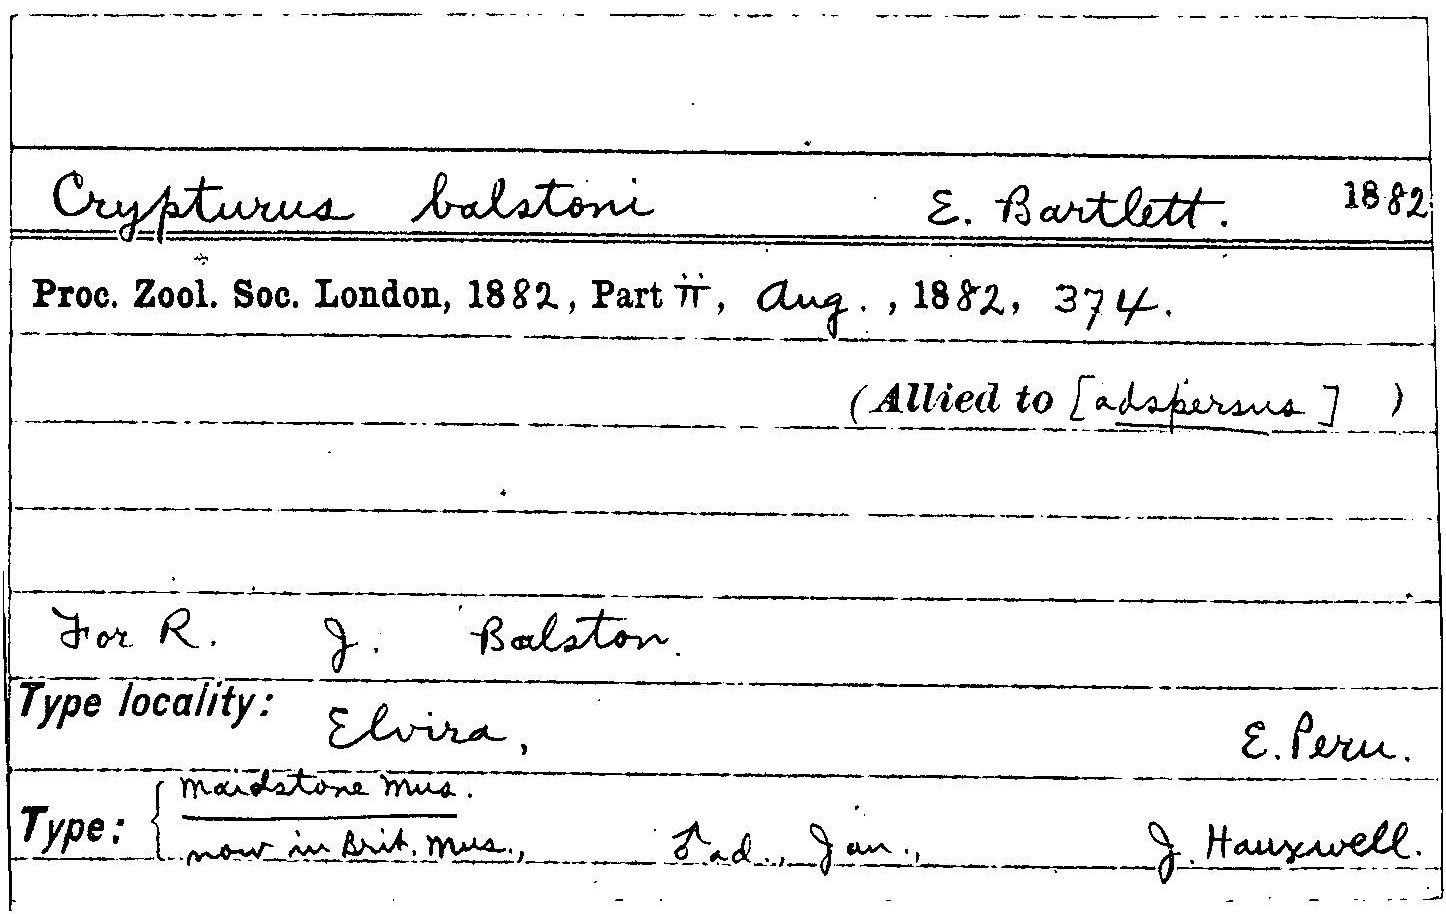 Crypturus balstoni E. Bartlett. 1882
Proc. Zool. Soc. London, 1882, Part ii, Aug., 1882, 374.
(Allied to [adspersus] )
For R. J. Balston.
Type locality: Elvira, E. Peru.
Type: { Maidstone Mus.
now in Brit. Mus., ♂ ad., Jan., J. Hauxwell.